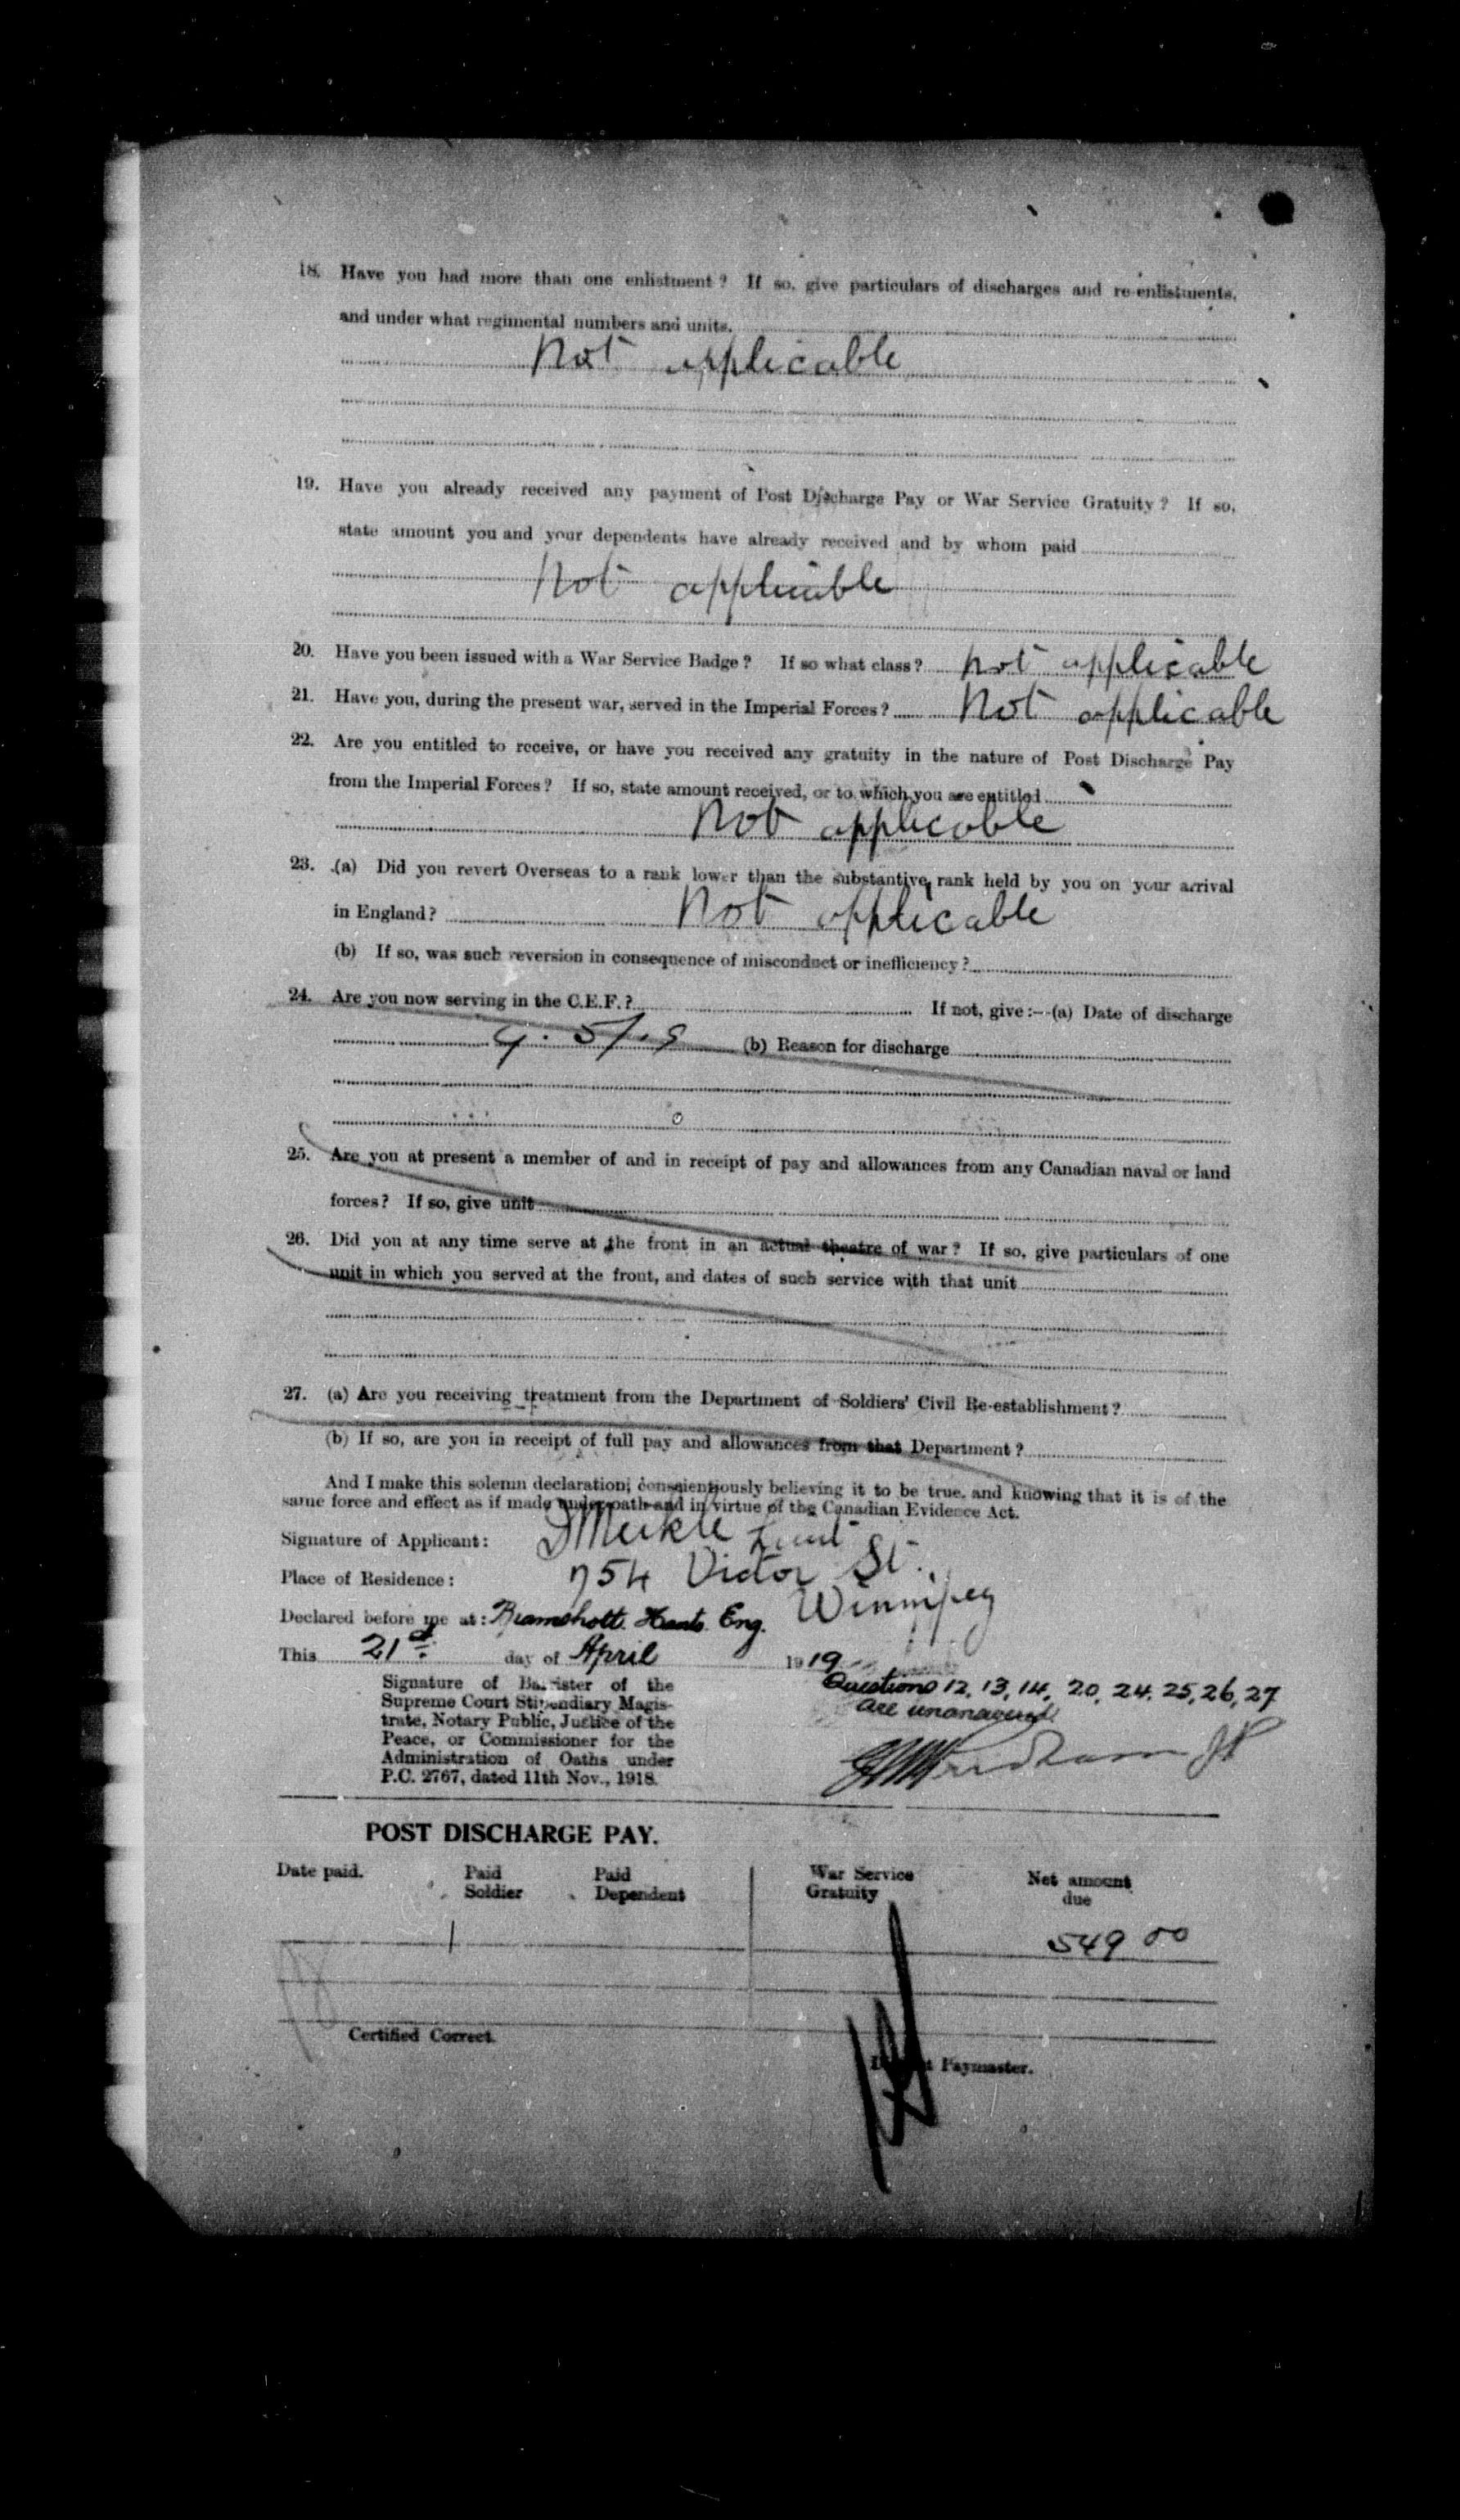 18. Have you had more than one enlistment? If so, give particulars of discharges and re-enlistments,
and under what regimental numbers and units.
Not applicable
19. Have you already received any payment of Post Discharge Pay or War Service Gratuity? If so,
state amount you and your dependents have already received and by whom paid
Not applicable
20. Have you been issued with a War Service Badge? If so what class? Not applicable
21. Have you, during the present war, served in the Imperial Forces? Not applicable
22. Are you entitled to receive, or have you received any gratuity in the nature of Post Discharge Pay
from the Imperial Forces? If so, state amount received, or to which you are entitled
Not applicable
23. (a) Did you revert Overseas to a rank lower than the substantive rank held by you on your arrival
in England? Not applicable
(b) If so, was such reversion in consequence of misconduct or inefficiency?
24. Are you now serving in the C.E.F.? If not, give:- (a) Date of discharge
(b) Reason for discharge
25. Are you at present a member of and in receipt of pay and allowances from any Canadian naval or land
forces? If so, give unit
26. Did you at any time serve at the front in an actual theatre of war? If so, give particulars of one
unit in which you served at the front, and dates of such service with that unit
27. (a) Are you receiving treatment from the Department of Soldiers' Civil Re-establishment?
(b) If so, are you in receipt of full pay and allowances from that Department?
And I make this solemn declaration; conscientiously believing it to be true, and knowing that it is of the
same force and effect as if made under oath and in virtue of the Canadian Evidence Act.
Signature of Applicant: Meikle Lieut
Place of Residence: 754 Victor St.,
Winnipeg
Declared before me at: Bramshott. Hants. Eng.
This 21st day of April 1919
Signature of Barrister of the
Supreme Court Stipendiary Magis-
trate, Notary Public, Justice of the
Peace, or Commissioner for the
Administration of Oaths under
P.C. 2767, dated 11th Nov., 1918.
Questions 12, 13, 14, 20, 24, 25, 26, 27
are unanswered.
JP
POST DISCHARGE PAY.
Date paid. Paid Soldier Paid Dependent War Service Gratuity Net amount due
549 00
Certified Correct.
Paymaster.